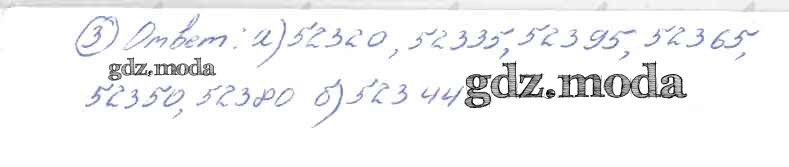 ③ Ответ: а) 52320, 52335, 52395, 52365,
gdz.moda
52350, 52380 б) 52344
gdz.moda